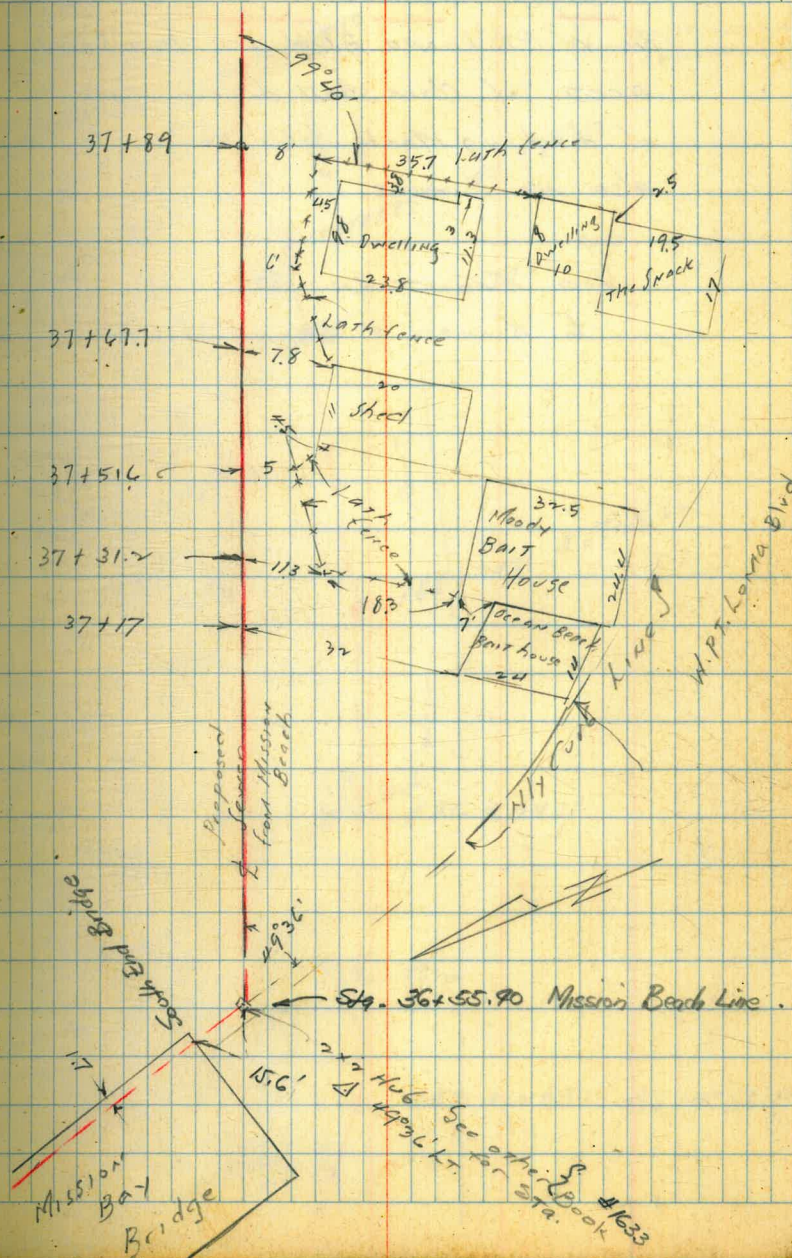 99°40'
37+89
8'
35.7 Lath fence
2.5
4.5
9.8
Dwelling
3
11.3
23.8
8
Dwelling
10
19.5
The Snack
17
6'
Lath fence
37+67.7
7.8
20
11
Shed
4.5
37+51.6
5
Lath
fence
32.5
Moody
Bait
House
24.4
37+31.2
11.3
18.3
7'
Ocean Beach
Bait house
14
24
37+17
32
W. Pt. Loma Blvd
N'ly Curb
Line
Proposed
Sewer
from Mission
Beach
49°36'
South End Bridge
Sta. 36+55.90 Mission Beach Line.
15.6'
1.7
2x2 Hub
△ 49°36' Lt.
See other Book
for Sta. #1633
Mission
Bay
Bridge